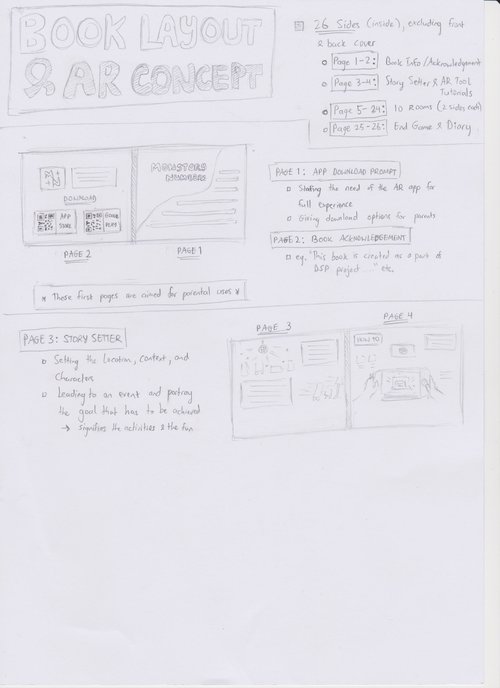 BOOK LAYOUT
& AR CONCEPT
26 Sides (inside), excluding front
& back cover
Page 1-2: Book Info/Acknowledgement
Page 3-4: Story Setter & AR Tool
Tutorials
Page 5-24: 10 Rooms (2 sides each)
Page 25-26: End Game & Diary
DOWNLOAD
APP
STORE
GOOGLE
PLAY
MONSTERS
NUMBER
PAGE 2
PAGE 1
PAGE 1: APP DOWNLOAD PROMPT
Stating the need of the AR app for
full experience
Giving download options for parents
PAGE 2: BOOK ACKNOWLEDGEMENT
eg. "This book is created as a part of
DSP project....." etc.
* These first pages are aimed for parental uses *
PAGE 3: STORY SETTER
Setting the Location, Context, and
Characters
Leading to an event and portray
the goal that has to be achieved
→ signifies the activities & the fun
PAGE 3
PAGE 4
HOW TO